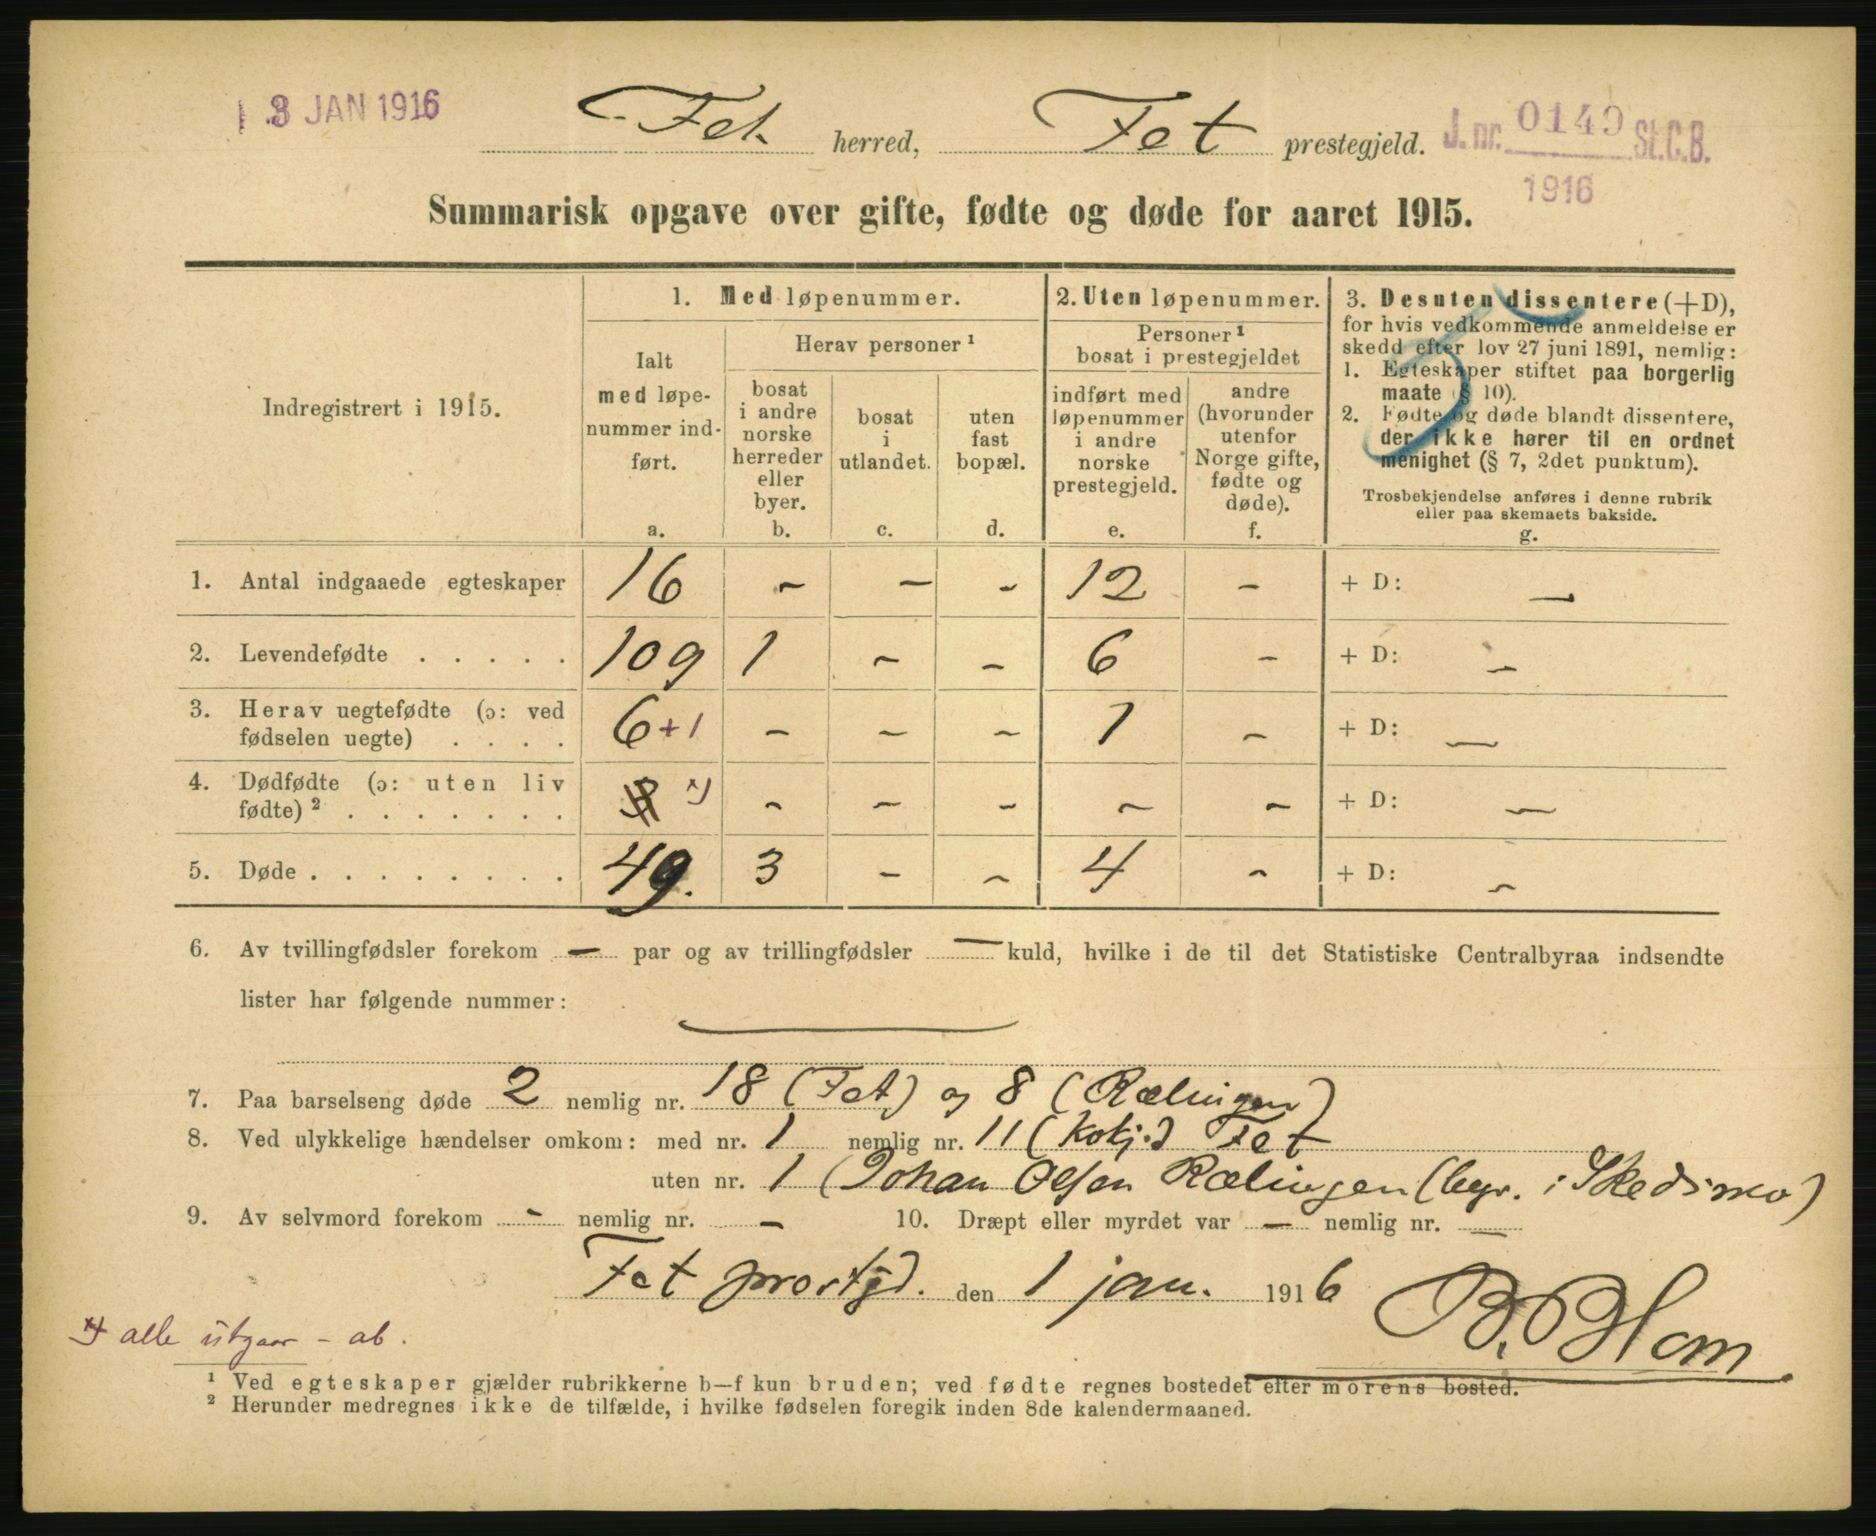 13 JAN 1916
Fet herred, Fet prestegjeld. J.nr. 0149 St.C.B.
1916
Summarisk opgave over gifte, fødte og døde for aaret 1915.
Indregistrert i 1915.
1. Med løpenummer.
Ialt
med løpe-
nummer ind-
ført.
a.
Herav personer ¹
bosat
i andre
norske
herreder
eller
byer.
b.
bosat
i
utlandet.
c.
uten
fast
bopæl.
d.
2. Uten løpenummer.
Personer ¹
bosat i prestegjeldet
indført med
løpenummer
i andre
norske
prestegjeld.
e.
andre
(hvorunder
utenfor
Norge gifte,
fødte og
døde).
f.
3. Desuten dissentere (+D),
for hvis vedkommende anmeldelse er
skedd efter lov 27 juni 1891, nemlig:
1. Egteskaper stiftet paa borgerlig
maate (§ 10).
2. Fødte og døde blandt dissentere,
der ikke hører til en ordnet
menighet (§ 7, 2det punktum).
Trosbekjendelse anføres i denne rubrik
eller paa skemaets bakside.
g.
1. Antal indgaaede egteskaper 16 - - - 12 - + D: -
2. Levendefødte . . . . . 109 1 - - 6 - + D: -
3. Herav uegtefødte (ɔ: ved
fødselen uegte) . . . . 6 +1 - - - 1 - + D: -
4. Dødfødte (ɔ: uten liv
fødte) ² . . . . . . . x) - - - - - + D: -
5. Døde . . . . . . . . 49. 3 - - 4 - + D: -
6. Av tvillingfødsler forekom - par og av trillingfødsler - kuld, hvilke i de til det Statistiske Centralbyraa indsendte
lister har følgende nummer:
7. Paa barselseng døde 2 nemlig nr. 18 (Fet) og 8 (Rælingen)
8. Ved ulykkelige hændelser omkom: med nr. 1 nemlig nr. 11 (Kokj.) Fet
uten nr. 1 (Johan Olsen Rælingen (begr. i Skedsmo)
9. Av selvmord forekom - nemlig nr. - 10. Dræpt eller myrdet var - nemlig nr. -
Fet prestgd. den 1 jan. 1916
B. Blom
x) alle utgaar - ab.
¹ Ved egteskaper gjælder rubrikkerne b—f kun bruden; ved fødte regnes bostedet efter morens bosted.
² Herunder medregnes ikke de tilfælde, i hvilke fødselen foregik inden 8de kalendermaaned.